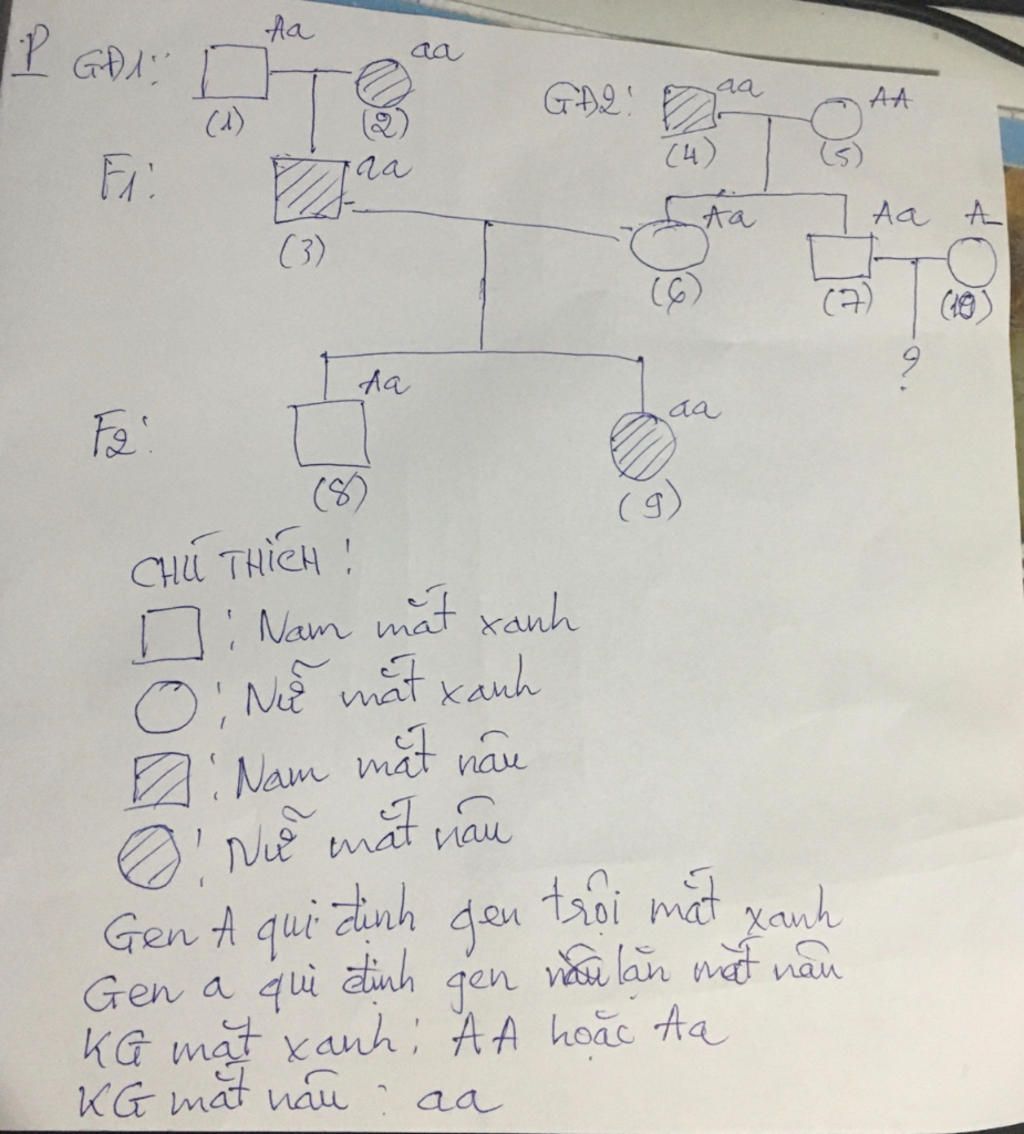 P GĐ1: Aa aa
(1) (2)
GĐ2: aa AA
(4) (5)
F1: aa
(3)
Aa Aa A_
(6) (7) (10)
?
F2: Aa aa
(8) (9)
CHÚ THÍCH:
: Nam mắt xanh
: Nữ mắt xanh
: Nam mắt nâu
: Nữ mắt nâu
Gen A qui định gen trội mắt xanh
Gen a qui định gen lặn mắt nâu
KG mắt xanh: AA hoặc Aa
KG mắt nâu: aa